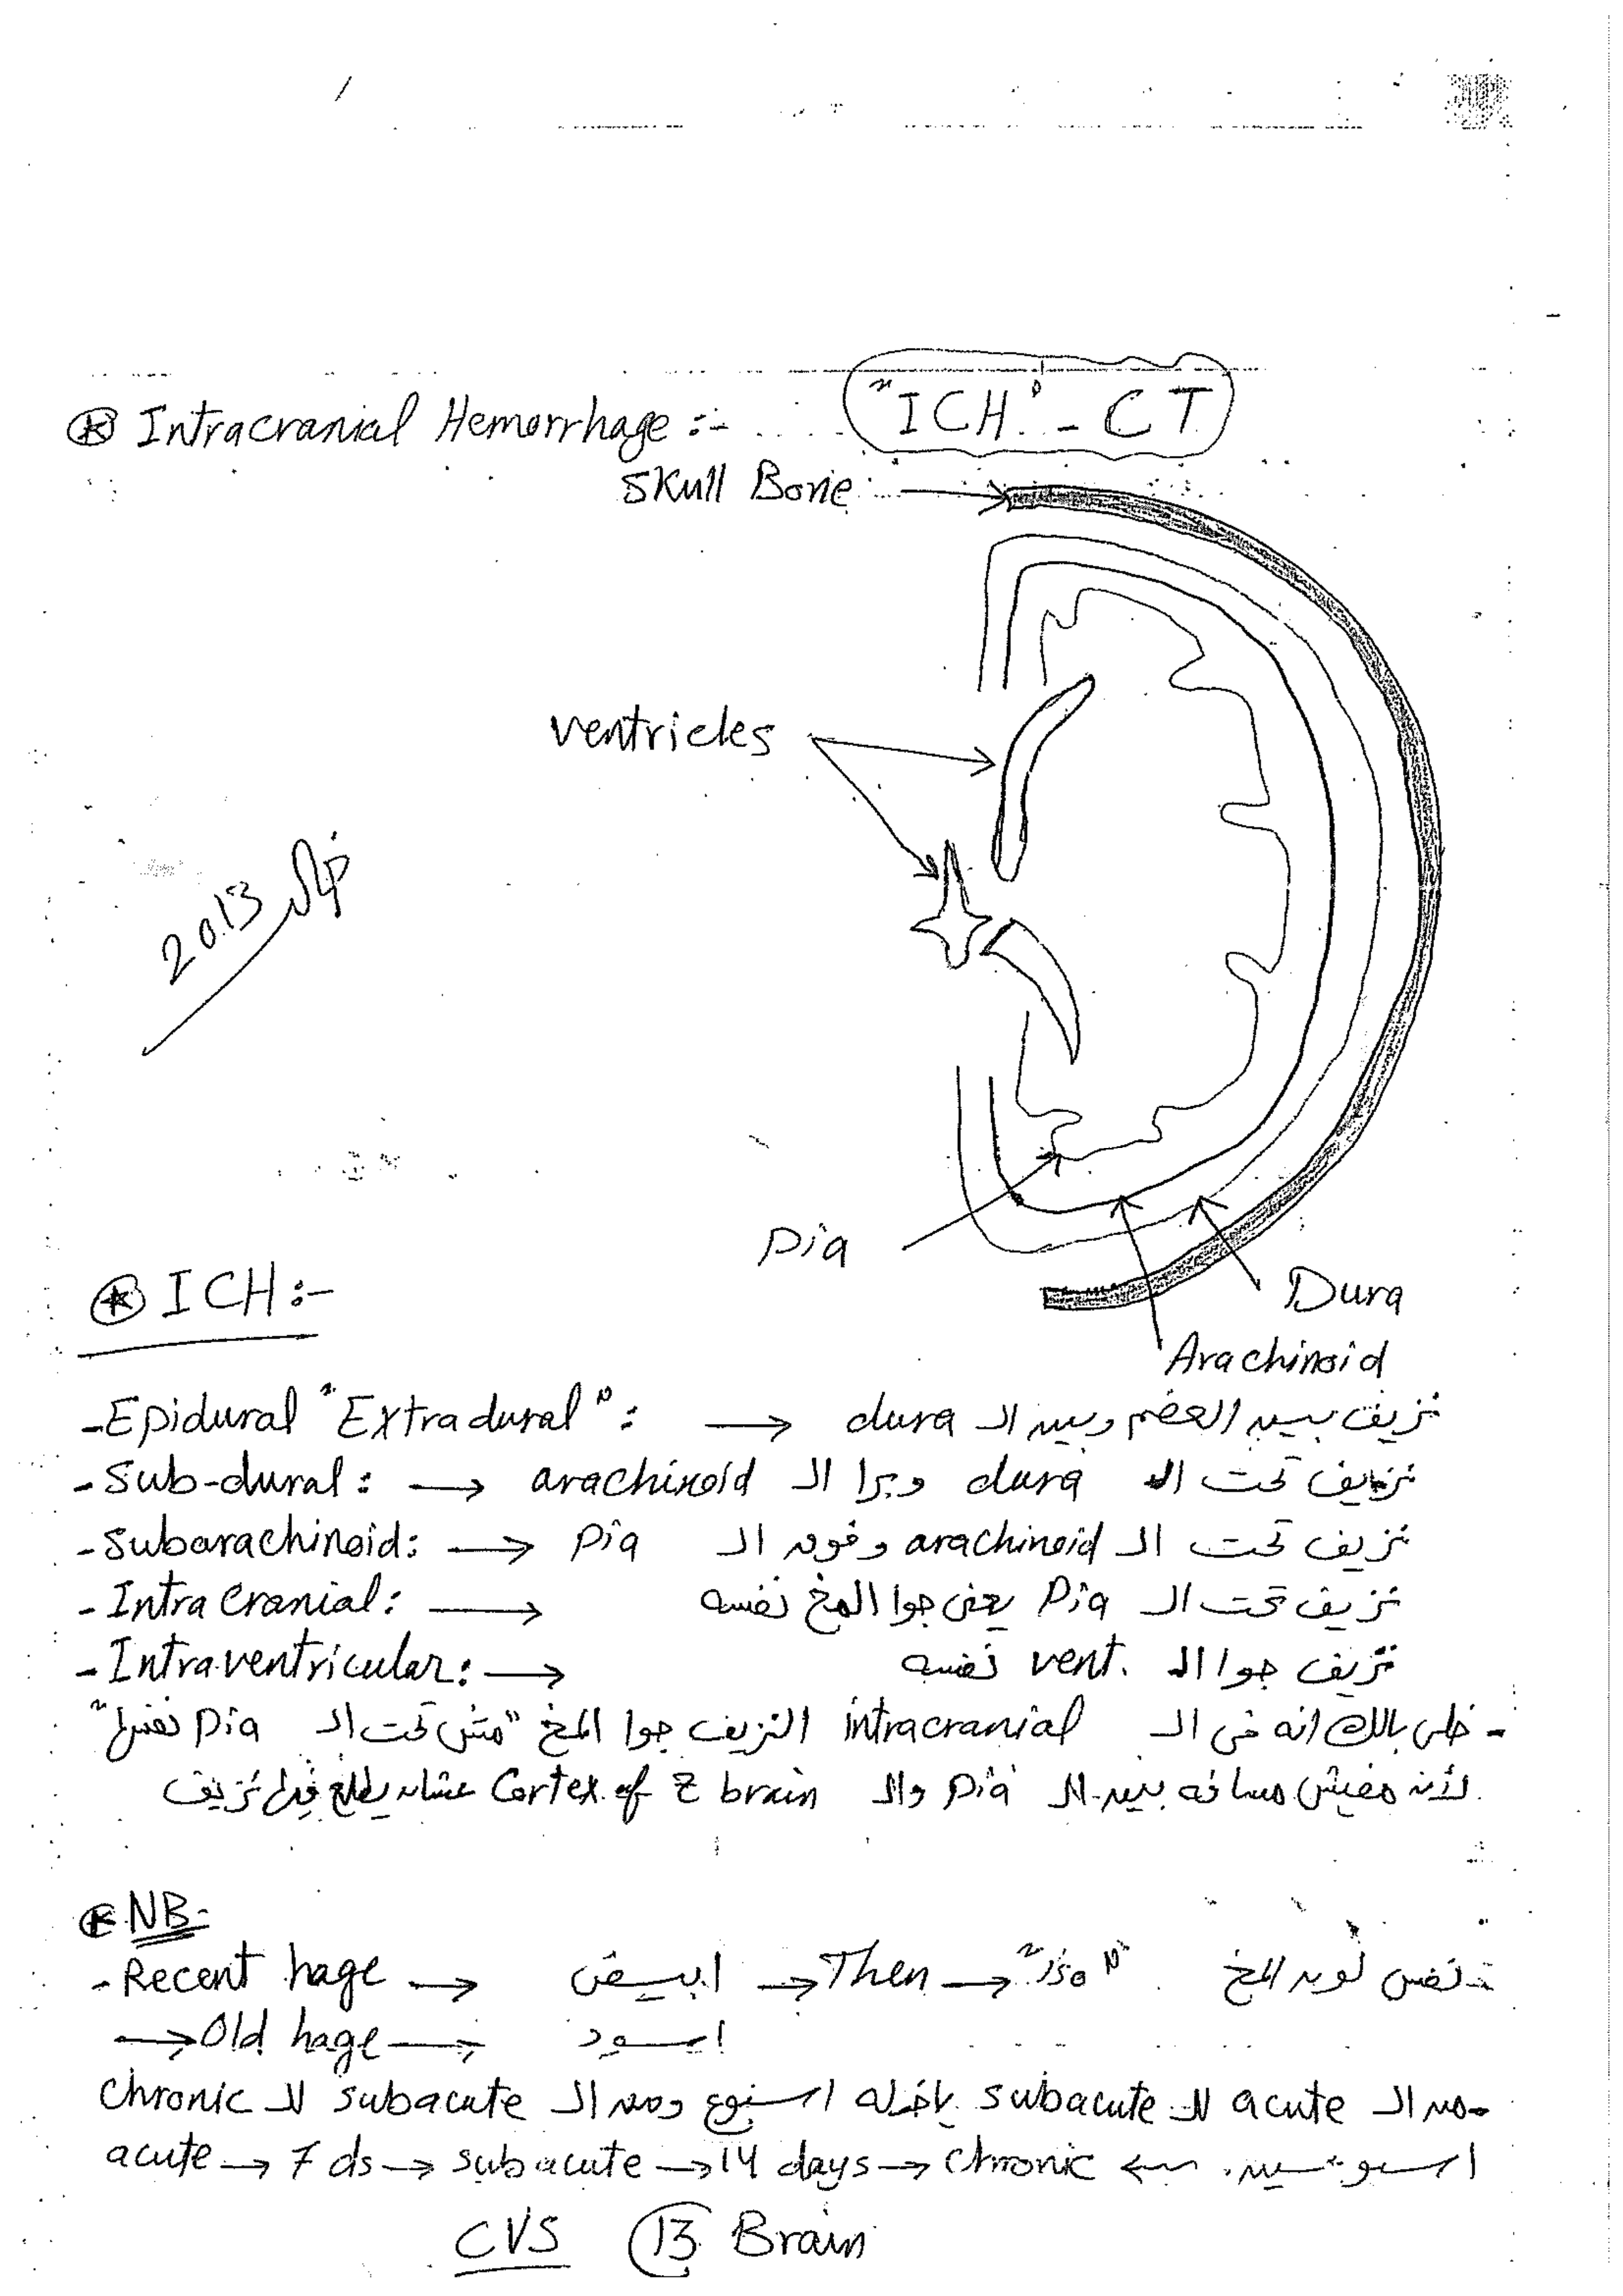 ⊛ Intracranial Hemorrhage :- "ICH" - CT
Skull Bone
ventricles
2013
Pia
Dura
Arachinoid
⊛ ICH :-
- Epidural "Extradural" : → نزيف بين العضم وبين الـ dura
- Sub-dural : → نزيف تحت الـ dura وبرا الـ arachinoid
- Subarachinoid : → نزيف تحت الـ arachinoid وفوق الـ Pia
- Intra cranial : → نزيف تحت الـ Pia يعنى جوا المخ نفسه
- Intraventricular : → نزيف جوا الـ vent. نفسه
- خلى بالك انه فى الـ intracranial النزيف جوا المخ "مش تحت الـ Pia نفسها"
لأن مفيش مسافه بين الـ Pia والـ Cortex of z brain عشان يطلع فيها نزيف
⊛ NB:-
- Recent hage → ابيض → Then → "iso" نفس لون المخ
→ Old hage → اسود
- من الـ acute للـ subacute ياخدله اسبوع ومن الـ subacute للـ chronic
اسبوعين. ← acute → 7 ds → subacute → 14 days → chronic
CVS 13 Brain